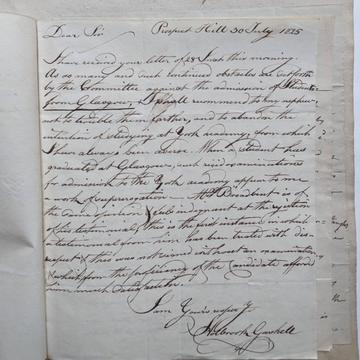 Dear Sir Prospect Hill 30 July 1825
I have received your letter of 28 Inst this morning.
As so many and such continued obstacles are put forth
by the Committee against the admission of Students
from Glasgow, I shall recommend to my nephew,
not to trouble them farther, and to abandon the
intention of studying at York academy, from which
I have always been averse. When a student has
graduated at Glasgow, such rigid examinations
for admission to the York academy appear to me
a work of supererogation — Mr Broadbent is of
the same opinion & feels indignant at the rejection
of his testimonial, this is the first instance in which
a testimonial from him has been treated with dis-
respect & this was not even without an examination
& which from the proficiency of the Candidate afforded
him much satisfaction.
I am Yours respectfy
Holbrook Gaskell